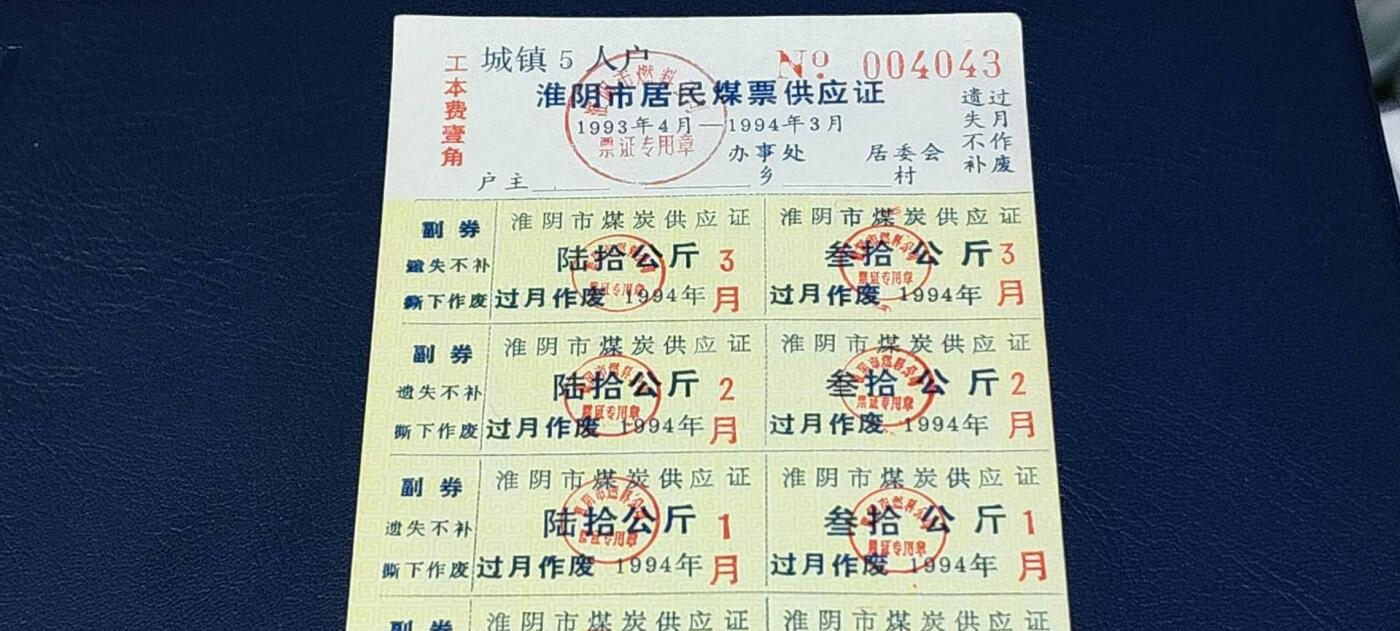 工本费壹角
城镇5人户
№ 004043
淮阴市居民煤票供应证
1993年4月—1994年3月
票证专用章
过月作废
遗失不补
办事处 居委会
户主 乡 村
副券 淮阴市煤炭供应证 淮阴市煤炭供应证
遗失不补 陆拾公斤 3 叁拾公斤 3
撕下作废 过月作废 1994年 月 过月作废 1994年 月
票证专用章 票证专用章
副券 淮阴市煤炭供应证 淮阴市煤炭供应证
遗失不补 陆拾公斤 2 叁拾公斤 2
撕下作废 过月作废 1994年 月 过月作废 1994年 月
票证专用章 票证专用章
副券 淮阴市煤炭供应证 淮阴市煤炭供应证
遗失不补 陆拾公斤 1 叁拾公斤 1
撕下作废 过月作废 1994年 月 过月作废 1994年 月
票证专用章 票证专用章
副券 淮阴市煤炭供应证 淮阴市煤炭供应证